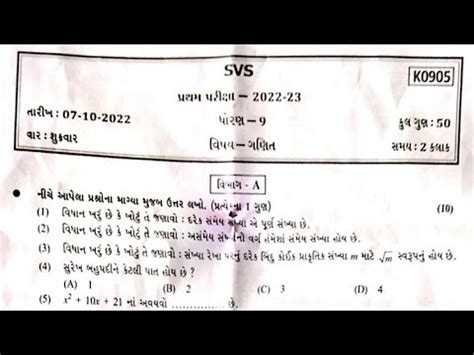 SVS
K0905
પ્રથમ પરીક્ષા – 2022-23
તારીખ : 07-10-2022
ધોરણ – 9
કુલ ગુણ : 50
વાર : શુક્રવાર
વિષય – ગણિત
સમય : 2 કલાક
વિભાગ - A
નીચે આપેલા પ્રશ્નોના માગ્યા મુજબ ઉત્તર લખો. (પ્રત્યેના 1 ગુણ) (10)
(1) વિધાન ખરું છે કે ખોટું તે જણાવો : દરેક સંમેય સંખ્યા એ પૂર્ણ સંખ્યા છે.
(2) વિધાન ખરું છે કે ખોટું તે જણાવો : અસંમેય સંખ્યાનો વર્ગ હંમેશાં સંમેય સંખ્યા હોય છે.
(3) વિધાન ખરું છે કે ખોટું તે જણાવો : સંખ્યા રેખા પરનું દરેક બિંદુ કોઈક પ્રાકૃતિક સંખ્યા m માટે √m સ્વરૂપનું હોય છે.
(4) સુરેખ બહુપદીને કેટલી ઘાત હોય છે ?
(A) 1 (B) 2 (C) 3 (D) 4
(5) x² + 10x + 21 નાં અવયવો ........ છે.